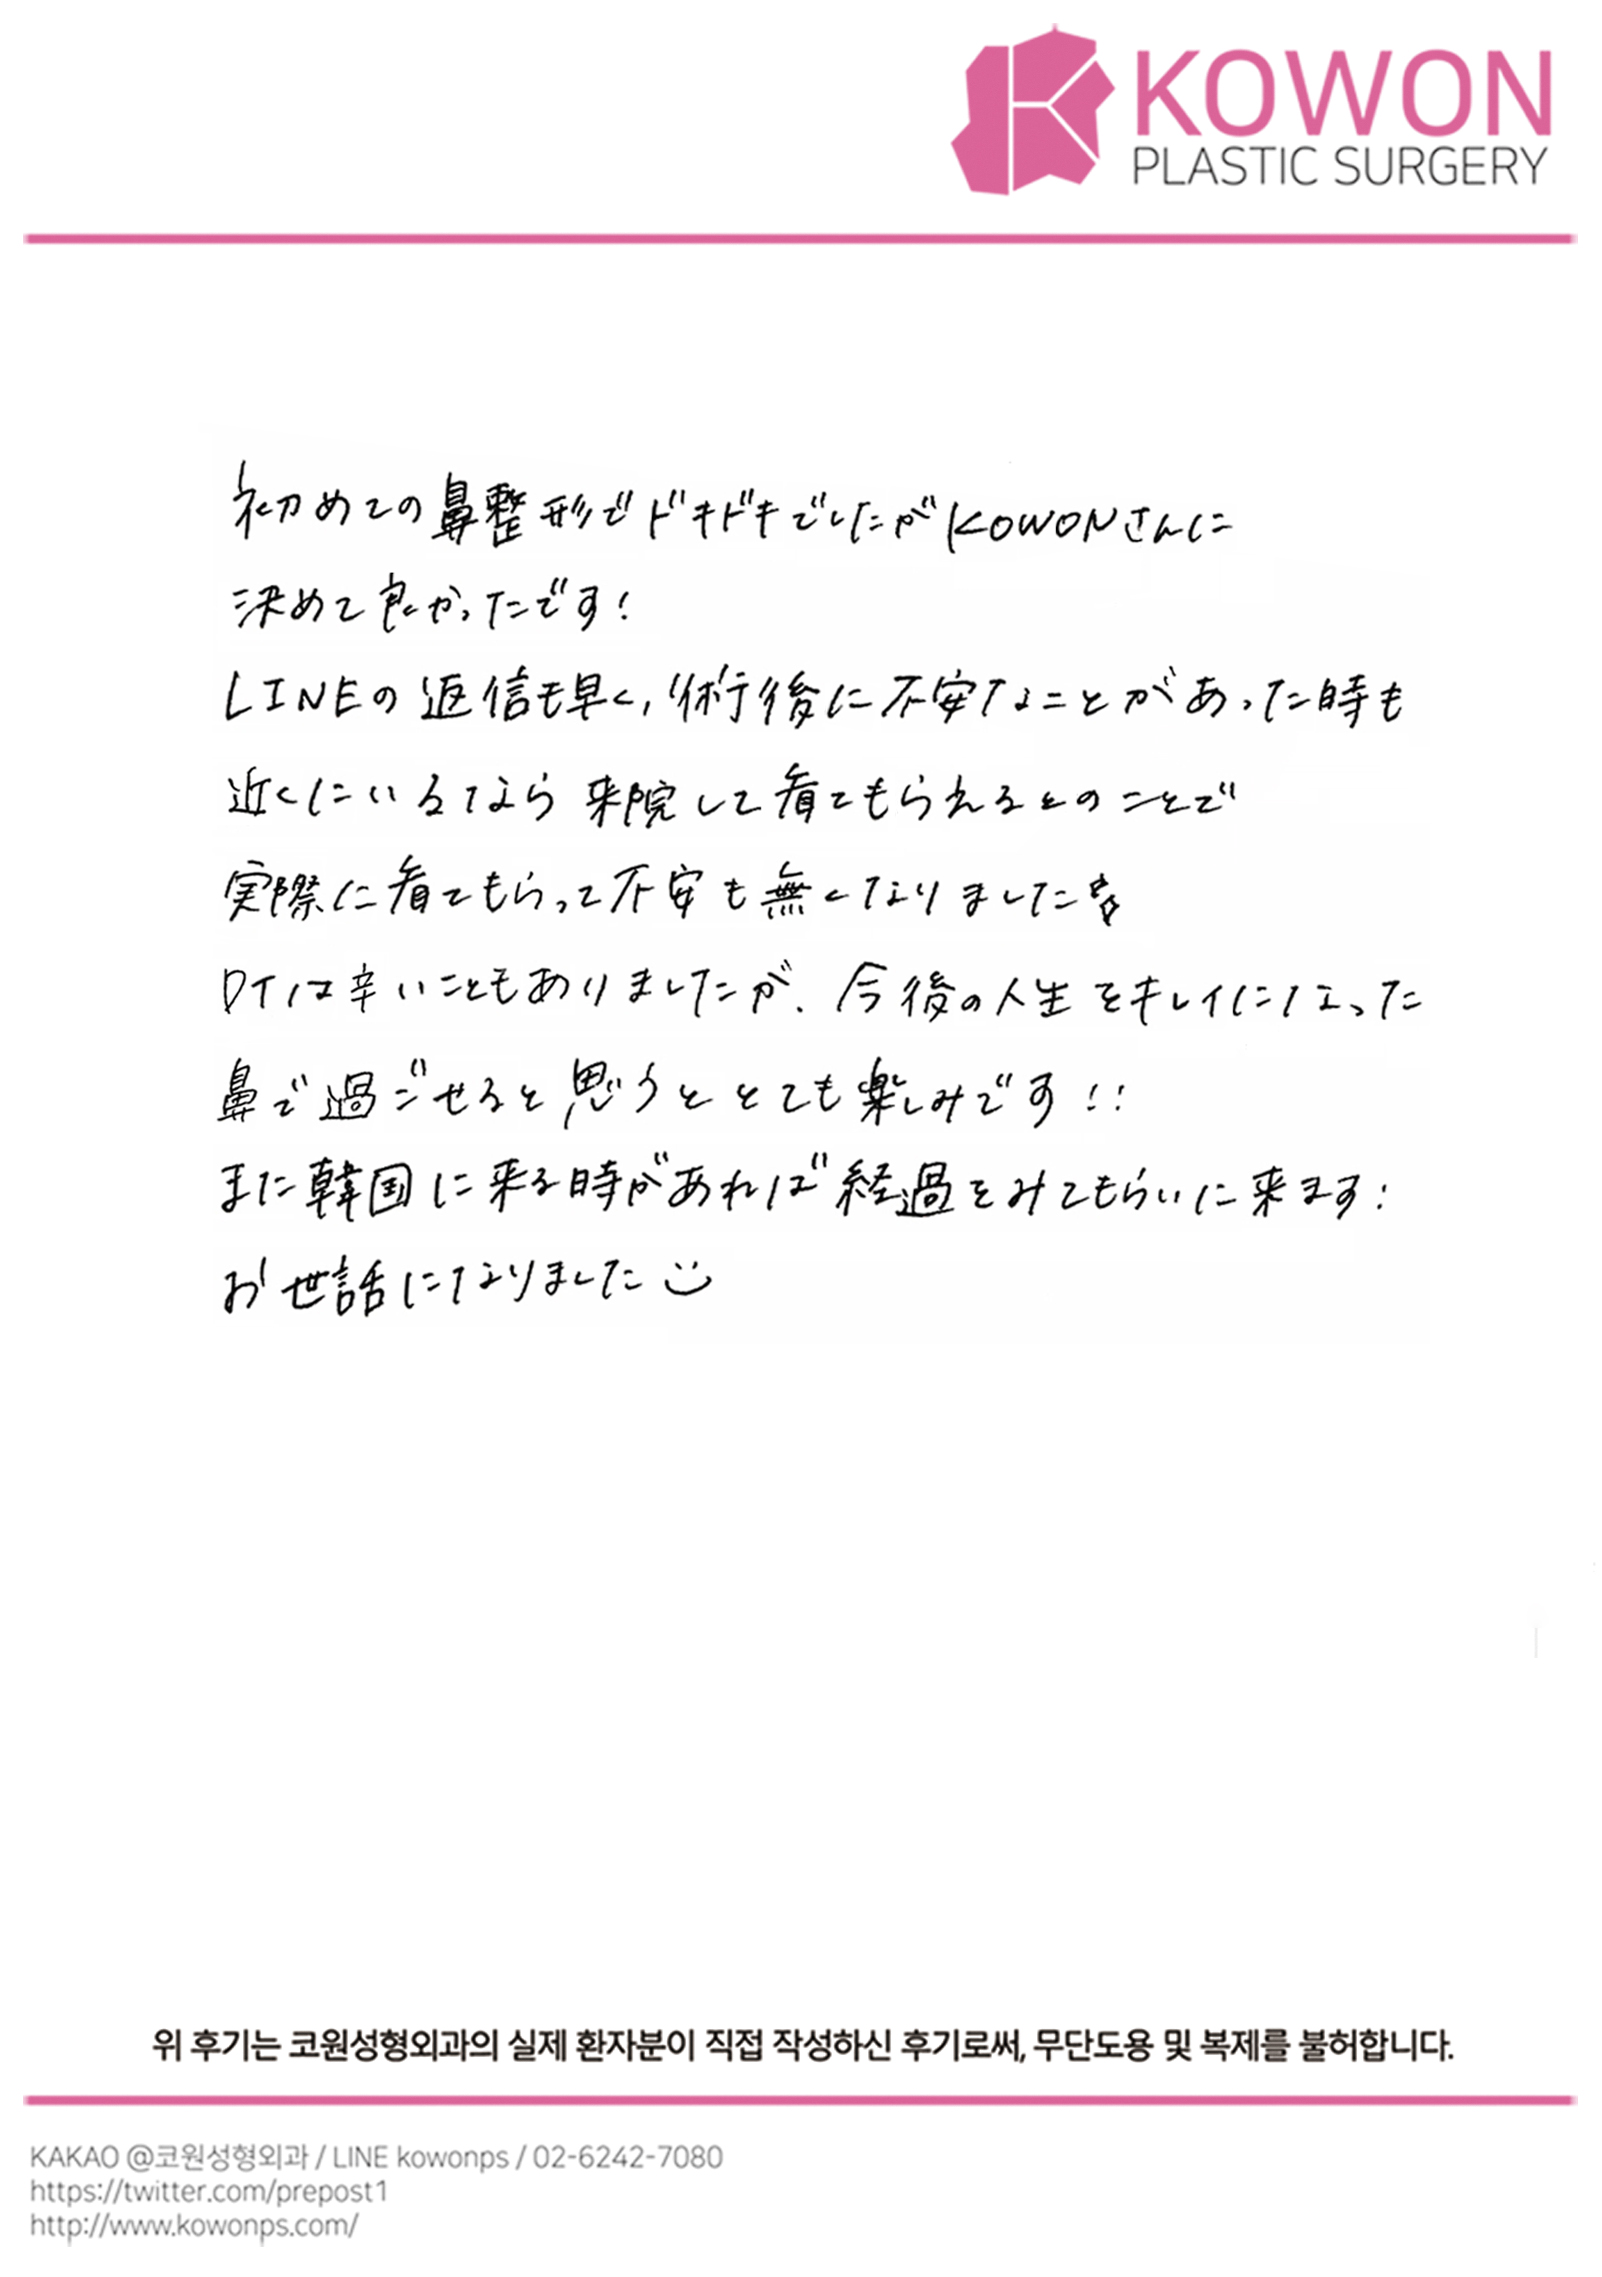 KOWON
PLASTIC SURGERY
初めての鼻整形でドキドキでしたがKOWONさんに
決めて良かったです!
LINEの返信も早く,術後に不安なことがあった時も
近くにいるなら来院して看てもらえるとのことで
実際に看てもらって不安も無くなりました
DTは辛いこともありましたが、今後の人生をキレイになった
鼻で過ごせると思うととても楽しみです!!
また韓国に来る時があれば経過をみてもらいに来ます!
お世話になりました
위 후기는 코원성형외과의 실제 환자분이 직접 작성하신 후기로써, 무단도용 및 복제를 불허합니다.
KAKAO @코원성형외과 / LINE kowonps / 02-6242-7080
https://twitter.com/prepost1
http://www.kowonps.com/